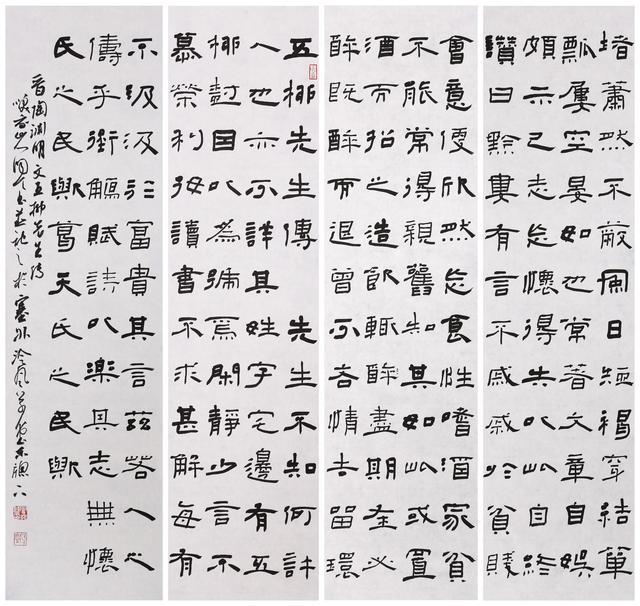 五柳先生傳 先生不知何許
人也亦不詳其姓字宅邊有五
柳樹因以為號焉閑靜少言不
慕榮利好讀書不求甚解每有
會意便欣然忘食性嗜酒家貧
不能常得親舊知其如此或置
酒而招之造飲輒醉盡期在必
醉既醉而退曾不吝情去留環
堵蕭然不蔽風日短褐穿結簞
瓢屢空晏如也常著文章自娛
頗示己志忘懷得失以此自終
讚曰黔婁有言不戚戚於貧賤
不汲汲於富貴其言茲若人之
儔乎銜觴賦詩以樂其志無懷
氏之民歟葛天氏之民歟
晉陶淵明文五柳先生傳